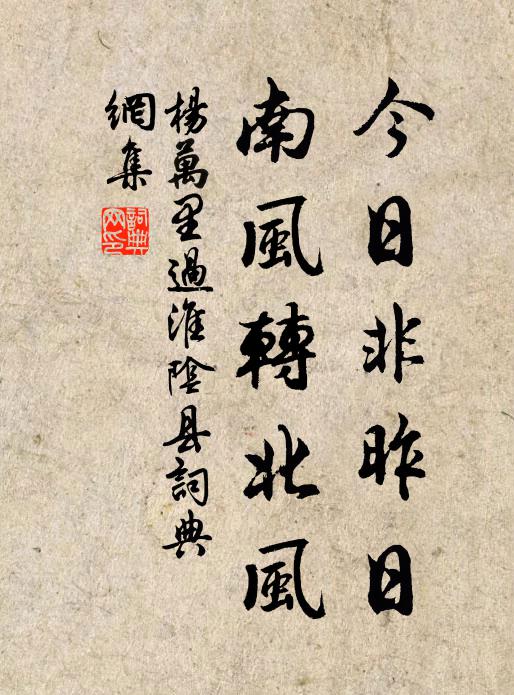 今日非昨日
南風轉北風
楊萬里過淮陰县詞典
網集
詞典
网印